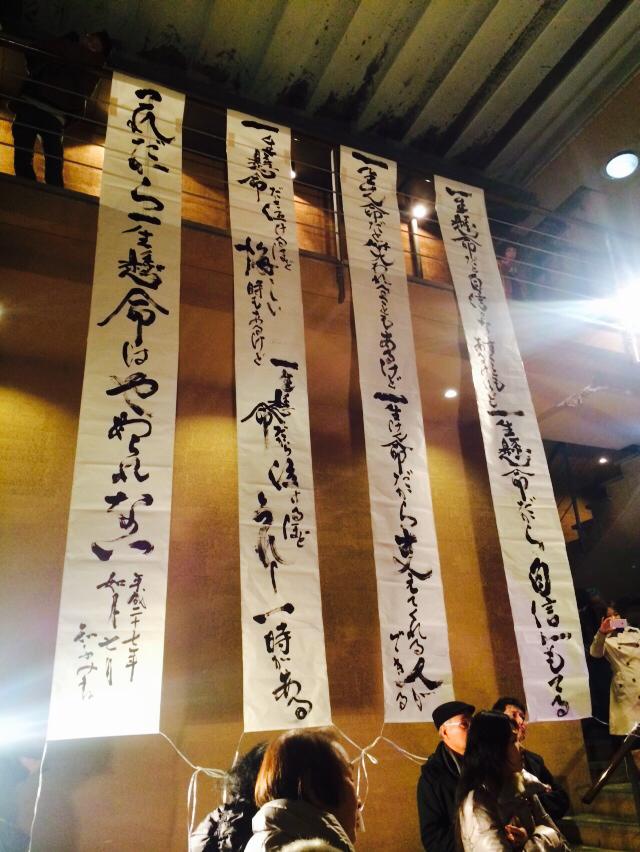 一生懸命だと自信を
一生懸命だから自信がもてる
一生けん命だと笑われることもあるけど
一生けん命だから支えてくれる人が
できる
一生懸命だと泣けるほど
悔しい
時もあるけど
一生懸命だから泣けるほど
うれしい時がある
これだから一生懸命はやめられない
平成二十七年
如月七日